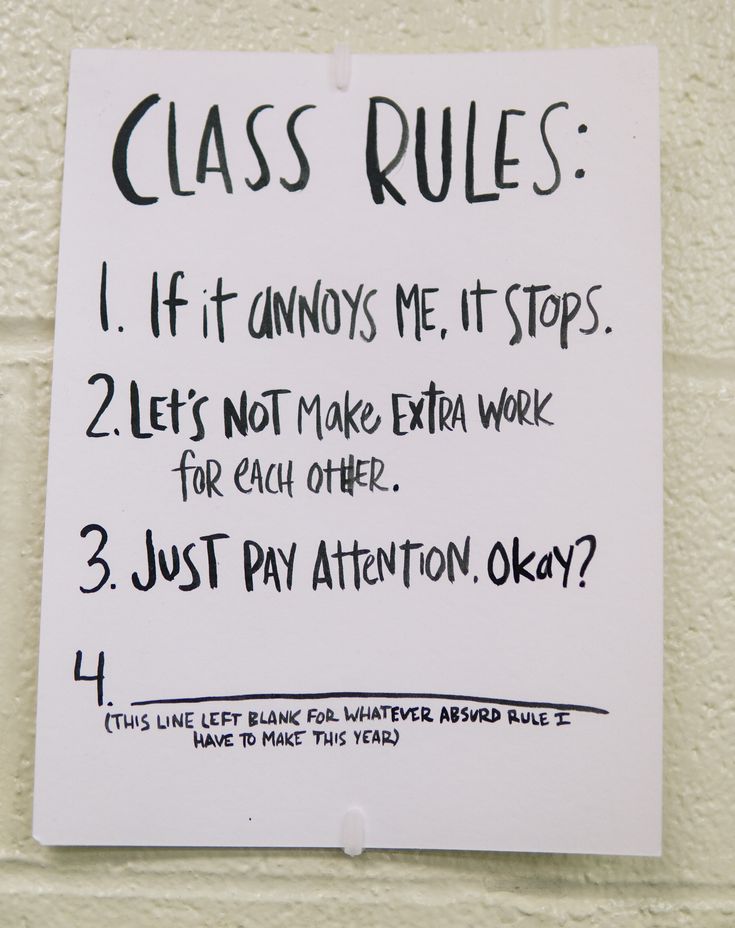 CLASS RULES:
1. If it ANNOYS ME, IT STOPS.
2. LET'S NOT MAKE EXTRA WORK
FOR EACH OTHER.
3. JUST PAY ATTENTION. OKAY?
4.
(THIS LINE LEFT BLANK FOR WHATEVER ABSURD RULE I
HAVE TO MAKE THIS YEAR)